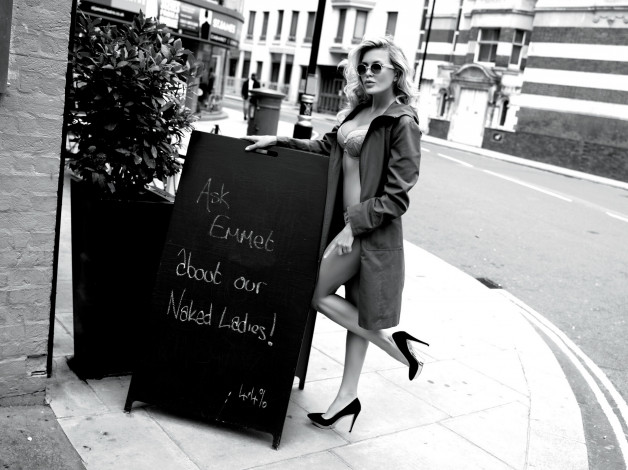 Ask
Emmet
about our
Naked Ladies!
4.4%